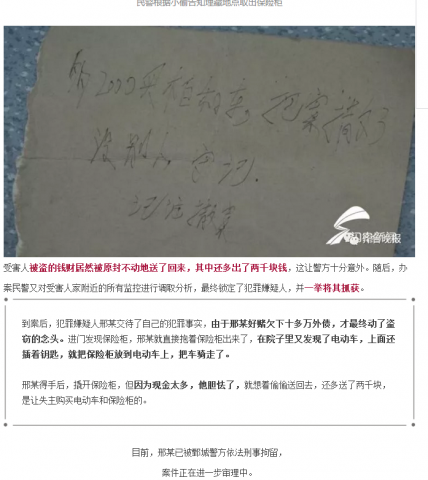 民警根据小偷告知埋藏地点取出保险柜
2000买柜和车
把案撤了
没别人
记住撤案
齐鲁晚报
受害人被盗的钱财居然被原封不动地送了回来，其中还多出了两千块钱，这让警方十分意外。随后，办
案民警又对受害人家附近的所有监控进行调取分析，最终锁定了犯罪嫌疑人，并一举将其抓获。
到案后，犯罪嫌疑人邢某交待了自己的犯罪事实，由于邢某好赌欠下十多万外债，才最终动了盗
窃的念头。进门发现保险柜，邢某就直接抱着保险柜出来了，在院子里又发现了电动车，上面还
插着钥匙，就把保险柜放到电动车上，把车骑走了。
邢某得手后，撬开保险柜，但因为现金太多，他胆怯了，就想着偷偷送回去，还多送了两千块，
是让失主购买电动车和保险柜的。
目前，邢某已被鄄城警方依法刑事拘留，
案件正在进一步审理中。